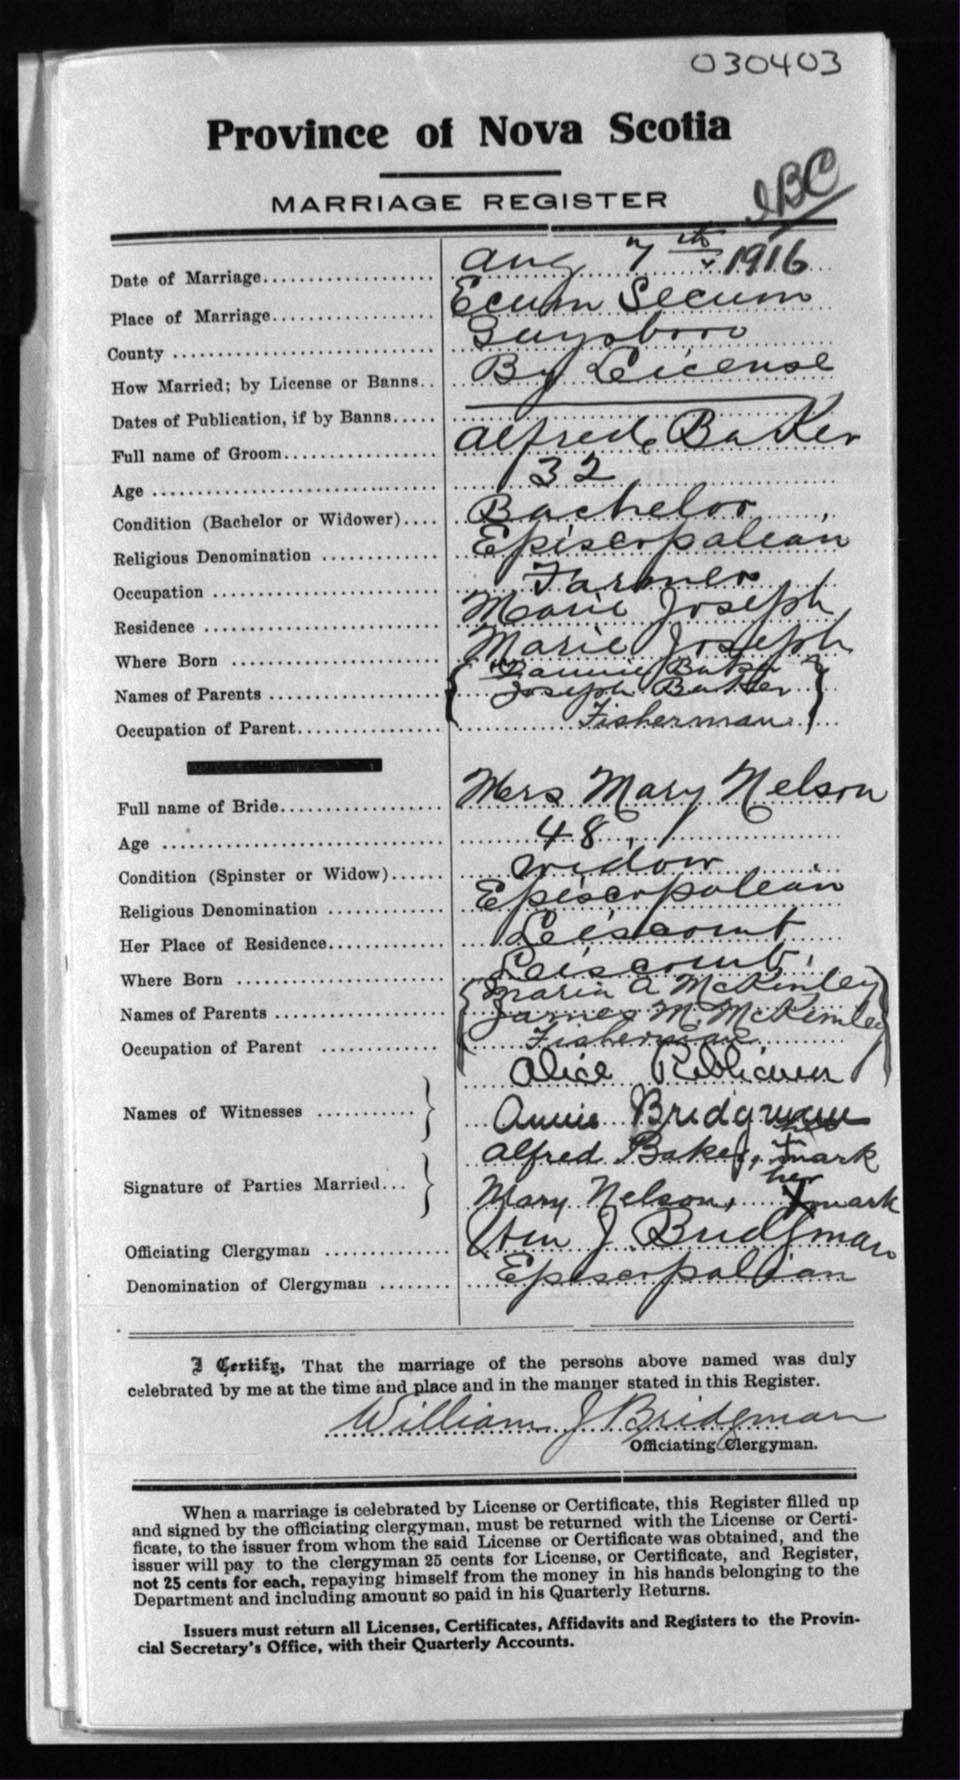 030403
Province of Nova Scotia
MARRIAGE REGISTER
Date of Marriage Aug 7th 1916
Place of Marriage Ecum Secum
County Guysboro
How Married; by License or Banns By Leicense
Dates of Publication, if by Banns
Full name of Groom Alfred Baker
Age 32
Condition (Bachelor or Widower) Bachelor
Religious Denomination Episcopalean
Occupation Farmer
Residence Marie Joseph
Where Born Marie Joseph
Names of Parents Baker
Joseph Baker
Occupation of Parent Fisherman
Full name of Bride Mrs Mary Nelson
Age 48
Condition (Spinster or Widow) Widow
Religious Denomination Episcopalean
Her Place of Residence Leiscomb
Where Born Leiscomb
Names of Parents Maria A McKinley
James M McKinley
Occupation of Parent Fisherman
Names of Witnesses Alice
Annie Bridgman
Signature of Parties Married Alfred Baker, mark
her
Mary Nelson, X mark
Officiating Clergyman Wm J. Bridgman
Denomination of Clergyman Episcopalian
I Certify, That the marriage of the persons above named was duly
celebrated by me at the time and place and in the manner stated in this Register.
William J Bridgman
Officiating Clergyman.
When a marriage is celebrated by License or Certificate, this Register filled up
and signed by the officiating clergyman, must be returned with the License or Certi-
ficate, to the issuer from whom the said License or Certificate was obtained, and the
issuer will pay to the clergyman 25 cents for License, or Certificate, and Register,
not 25 cents for each, repaying himself from the money in his hands belonging to the
Department and including amount so paid in his Quarterly Returns.
Issuers must return all Licenses, Certificates, Affidavits and Registers to the Provin-
cial Secretary's Office, with their Quarterly Accounts.